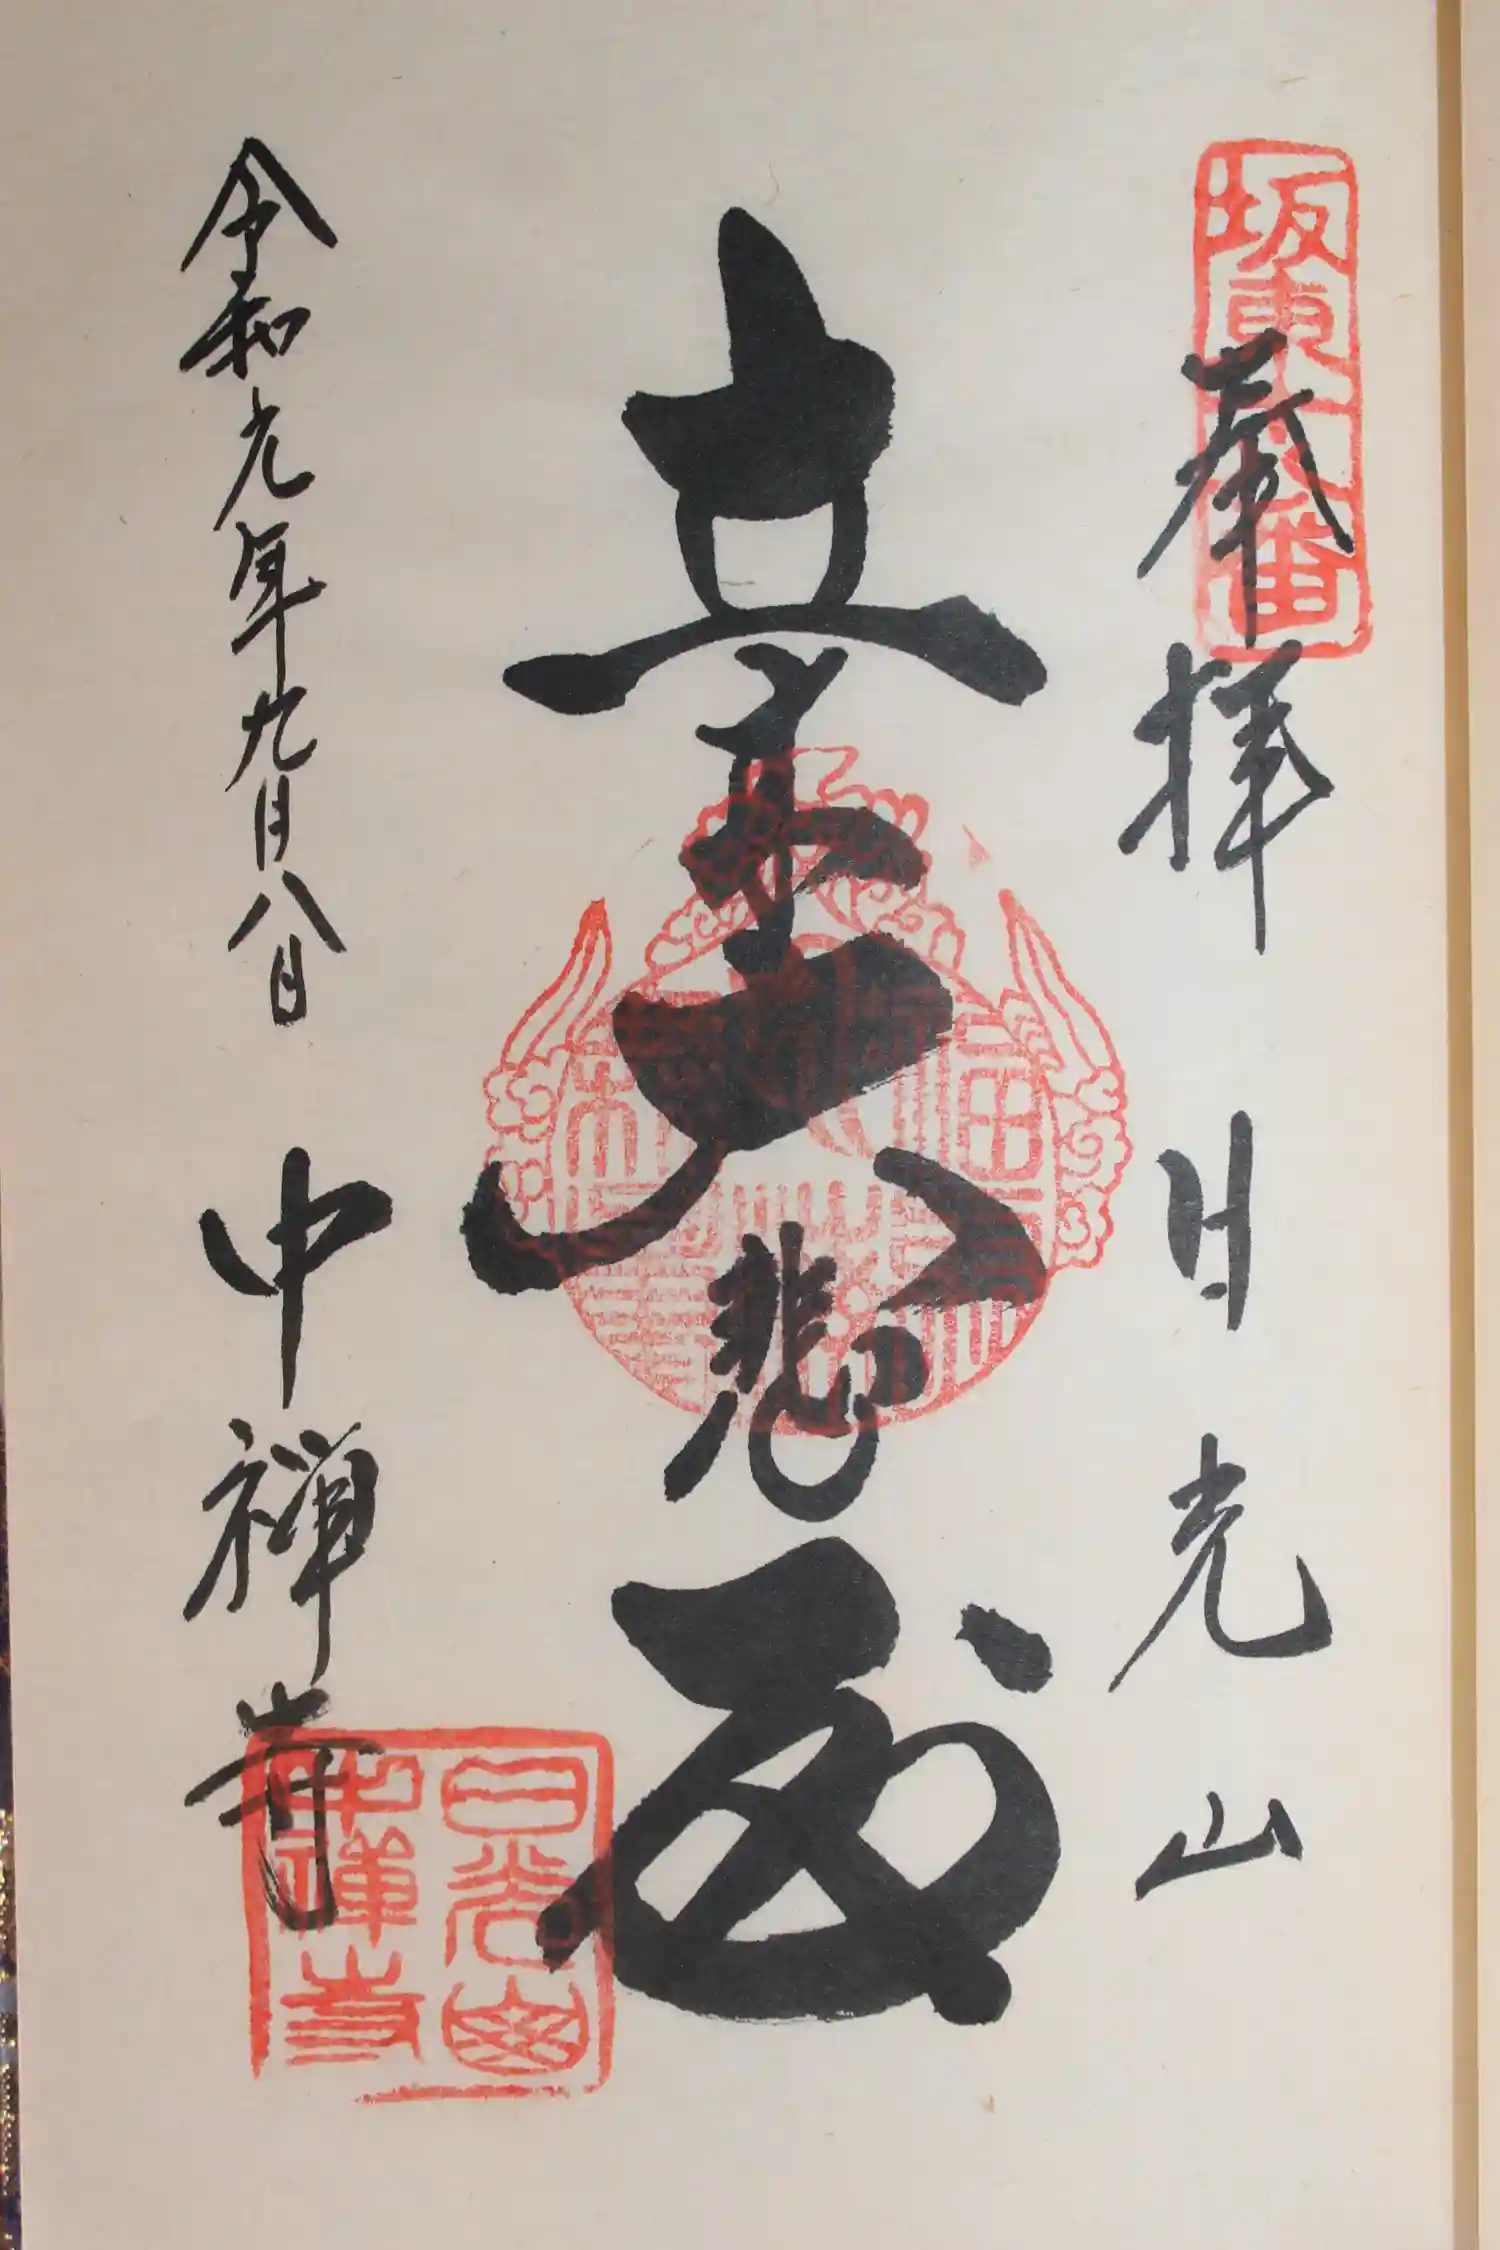 坂東十八番
奉拝 日光山
立木大悲殿
令和元年九月八日 中禅寺
日光山
中禅寺